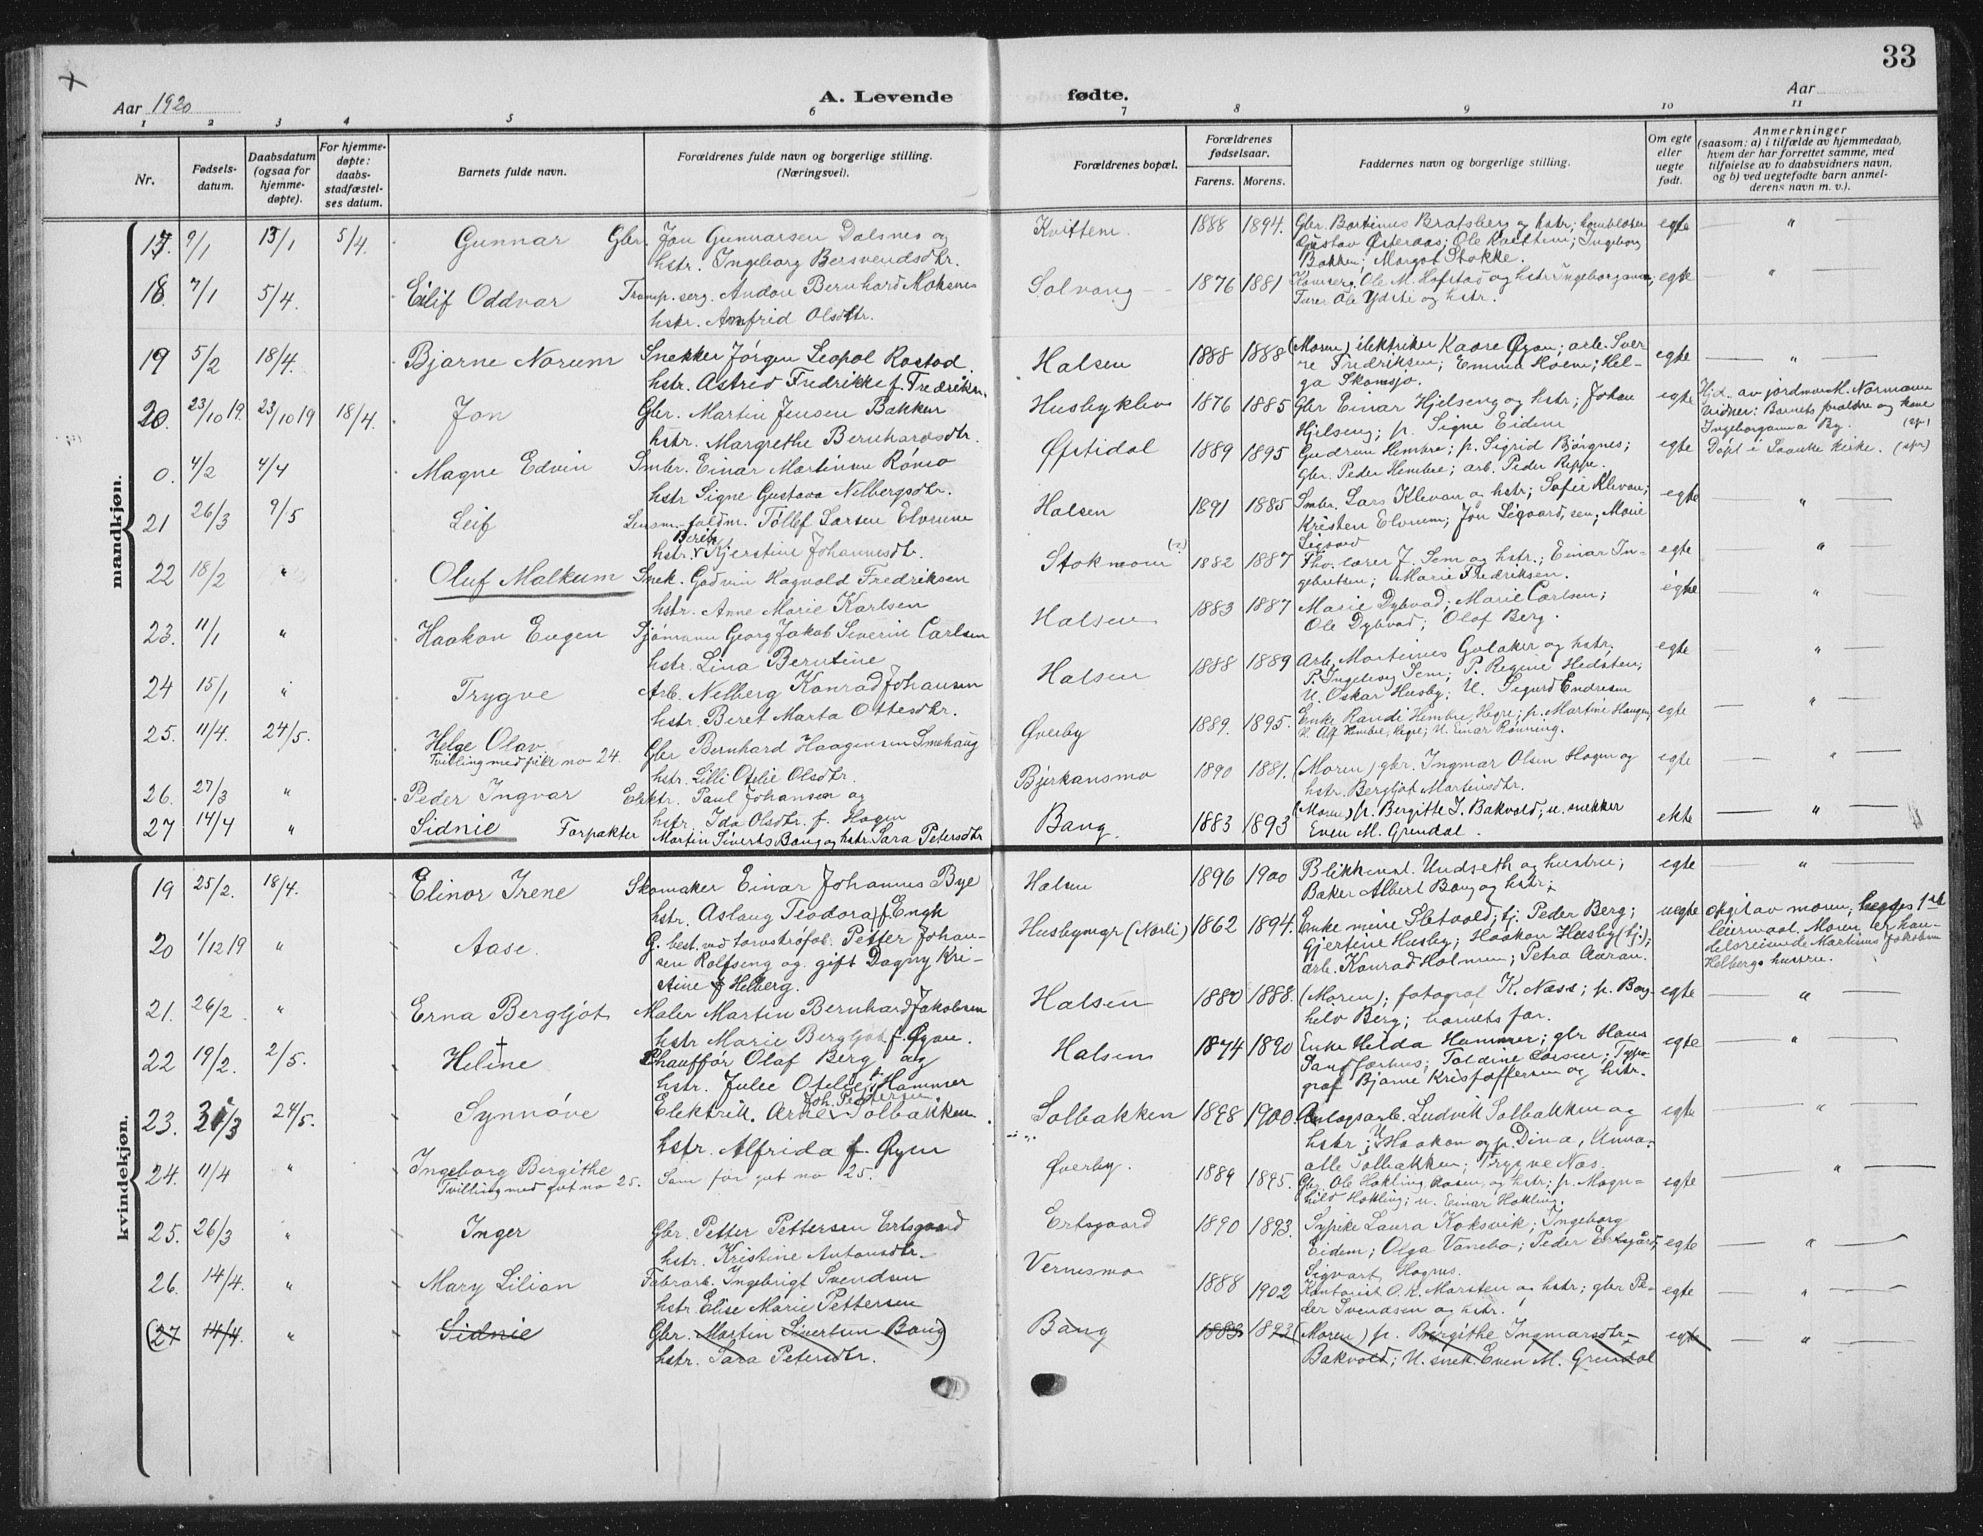 33
Aar 1920
A. Levende
fødte.
Aar
1 2 3 4 5 6 7 8 9 10 11
Nr.
Fødsels-
datum.
Daabsdatum
(ogsaa for
hjemme-
døpte).
For hjemme-
døpte:
daabs-
stadfæstel-
ses datum.
Barnets fulde navn.
Forældrenes fulde navn og borgerlige stilling.
(Næringsvei).
Forældrenes bopæl.
Forældrenes
fødselsaar.
Farens. Morens.
Faddernes navn og borgerlige stilling.
Om egte
eller
uegte
født.
Anmerkninger
(saasom: a) i tilfælde av hjemmedaab,
hvem der har forrettet samme, med
tilføielse av to daabsvidners navn,
og b) ved uegtefødte barn anmel-
derens navn m. v.).
mandkjøn.
17. 9/1 15/1 5/4. Gunnar Gbr. Jon Gunnarsen Dalsnes og Kvittem. 1888 1894. Gbr. Bortinus Bratsberg og hstr; egte "
hstr. Ingeborg Bersvendsdtr. Gustav Østeraas; Ole Kvittem; Ingeborg
Bakken; Margot Stokke.
18. 7/1 5/4. Eilif Oddvar Transp. serg. Andon Bernhard Moksnes Solvang 1876 1881 Ole M. Hofstad og hstr Ingeborganna; egte "
hstr. Arnfrid Olsdtr. Furer Ole Ydsti og hstr.
19 5/2 18/4. Bjarne Norum Snekker Jørgen Leopol Rostad Halsen 1888 1888 (Moren) elektriker Kaare Øyan; arb. Sver- egte "
hstr. Astrid Fredrikke f. Fredriksen. re Fredriksen; Emma Hoem; Hel-
ga Skomsjo.
20. 23/10 19. 23/10 19 18/4. Jon Gbr. Martin Jensen Bakken Husbyklev 1876 1885 Gbr Einar Hjelseng og hstr; Johan egte Hjd. av jordmor M. Normann
hstr. Margrethe Bernhardsdtr. Hjelseng; p. Signe Eidem Vidner: Barnets forældre og kone
Ingeborganna By.
0. 4/2 4/4 Magne Edvin Smbr. Einar Martinsen Rømo Øfstidal 1889 1895 Gudrun Hembre; p. Sigrid Børgnes; egte Døpt i Laanke kirke.
hstr Signe Gustava Nelbergsdtr. Gbr. Peder Hembre; arb. Peder Reppe.
21 26/3 9/5 Leif Lensm.-fuldm. Tollef Larsen Elvrum Halsen 1891 1885 Smbr. Lars Klevan og hstr; Sofie Klevan; egte "
Berit
hstr. Kjerstine Johannesdtr. Kristen Elvrum; Jon Ligaard, sen; Marie
Ligaard
22 18/2 " Oluf Malkum Snek. Godvin Ragvald Fredriksen Stokmoen (?) 1882 1887 Fhv. lærer J. Sem og hstr.; Einar In- egte "
hstr. Anne Marie Karlsen gebretsen; Marie Fredriksen.
23. 11/1 " Haakon Eugen Sjømann Georg Jakob Severin Carlsen Halsen 1883 1887 Marie Dybvad; Marie Carlsen; egte "
hstr. Lina Berntine Ole Dybvad; Olaf Berg.
24 15/1 " Trygve Arb. Nelberg Konrad Johansen Halsen 1888 1889 Arb. Martinus Golaker og hstr. egte "
hstr. Beret Marta Ottesdtr. P. Ingeborg Sem; P. Regine Hedsten;
U. Oskar Husby; U. Sigurd Endresen
25. 11/4. 24/5. Helge Olav. Gbr Bernhard Haagensen Smehaug Øverby 1889. 1895. Enke Randi Hembre, Hegre; p. Martine Haugen, egte "
Tvilling med pike no 24. hstr. Lilli Otelie Olsdtr. U. Alf Hembre, Hegre; U. Einar Rønning.
26. 27/3 " Peder Ingvar Elektr. Paul Johansen og Bjerkansmo 1890 1881. (Moren) gbr. Ingmar Olsen Hogen og egte "
hstr. Ida Olsdtr. f. Hogen hstr. Bergljot Martinsdtr.
27 14/4 " Sidnie Forpakter Martin Siverts Bang og hstr Sara Petersdtr Bang. 1883 1893 (Moren) p. Bergitte I. Bakvold, u. snekker ekte "
Even M. Grendal.
kvindekjøn.
19 25/2. 18/4. Elinor Irene Skomaker Einar Johannes Bye Halsen 1896 1900 Blikkensl. Undseth og hustru; egte "
hstr. Aslaug Teodora f. Engh Baker Albert Bang og hstr;
20 1/12 19 " Aase. G. best. ved torvstrøfab. Petter Johan- Husbymyr (Norli) 1862 1894. Enke mine Sletvold; tj. Peder Berg; uegte Opgit av moren; begges 1ste
sen Rolfseng og gift Dagny Kri- Gjertine Husby; Haakon Husby (tj.); leiermaal. Moren er han-
stine f Helberg. arb. Konrad Holmen; Petra Aaran. delsreisende Martinus Jakobsen
Helbergs hustru.
21. 26/2. " Erna Bergljot Maler Martin Bernhard Jakobsen Halsen 1880 1888. (Moren); fotograf K. Næss; p. Borg- egte "
hstr Marie Bergljot f. Øyan. hild Berg; barnets far.
22 19/2. 2/5. Heline Chauffør Olaf Berg og Halsen 1874 1890 Enke Helda Hammer; gbr Hans egte "
hstr. Julie Otelie f. Hammer Sandfærhus; Toldine Larsen; Typo-
graf Bjarne Kristoffersen og hstr.
23. 31/3 24/5. Synnøve Elektrik. Arne Joh. Pettersen Solbakken Solbakken 1898 1900 Anlagsarb. Ludvik Solbakken og egte "
hstr. Alfrida f. Øyen hstr; U Haakon og p. Dina, Unna,
alle Solbakken; Trygve Næs.
24. 11/4 " Ingeborg Bergithe Som for gut no 25. Øverby. 1889 1895. Gbr. Ole Hokling, Aasen, og hstr; p. Magn- egte "
Tvilling med gut no 25. hild Hokling; u. Einar Hokling.
25. 26/3 " Inger Gbr. Petter Pettersen Ertsgaard Ertsgaard 1890 1893. Sypike Laura Koksvik; Ingeborg egte "
hstr. Kristine Antonsdtr. Eidem; Olga Vaneboe; Peder Ertsgård;
Sigvart Hognes.
26. 14/4. " Mary Lilian Fabrarb. Ingebrigt Svendsen Vernesmo 1888 1902 Kontorist O. K. Marsten og hstr; gbr Pe- egte "
hstr. Elise Marie Pettersen der Svendsen og hstr.
(27 14/4. " Sidnie Gbr. Martin Sivertsen Bang) Bang 1883 1893 (Moren) p. Bergithe Ingmarsdtr- egte "
hstr. Sara Petersdtr. Bakvold; U. snek. Even M. Grendal